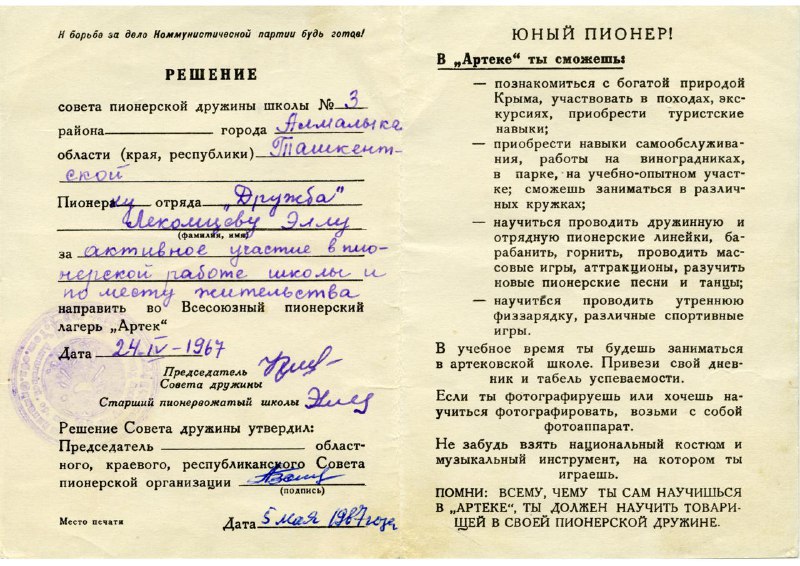 К борьбе за дело Коммунистической партии будь готов!
РЕШЕНИЕ
совета пионерской дружины школы № 3
района города Алмалыка
области (края, республики) Ташкент-
ской
Пионерку отряда „Дружба"
Лекомцеву Эллу
(фамилия, имя)
за активное участие в пио-
нерской работе школы и
по месту жительства
направить во Всесоюзный пионерский
лагерь „Артек"
Дата 24 IV-1967
Председатель
Совета дружины
Старший пионервожатый школы
Решение Совета дружины утвердил:
Председатель област-
ного, краевого, республиканского Совета
пионерской организации
(подпись)
Место печати Дата 5 мая 1967 года
ЮНЫЙ ПИОНЕР!
В „Артеке" ты сможешь:
— познакомиться с богатой природой
Крыма, участвовать в походах, экс-
курсиях, приобрести туристские
навыки;
— приобрести навыки самообслужива-
ния, работы на виноградниках,
в парке, на учебно-опытном участ-
ке; сможешь заниматься в различ-
ных кружках;
— научиться проводить дружинную и
отрядную пионерские линейки, ба-
рабанить, горнить, проводить мас-
совые игры, аттракционы, разучить
новые пионерские песни и танцы;
— научиться проводить утреннюю
физзарядку, различные спортивные
игры.
В учебное время ты будешь заниматься
в артековской школе. Привези свой днев-
ник и табель успеваемости.
Если ты фотографируешь или хочешь на-
учиться фотографировать, возьми с собой
фотоаппарат.
Не забудь взять национальный костюм и
музыкальный инструмент, на котором ты
играешь.
ПОМНИ: ВСЕМУ, ЧЕМУ ТЫ САМ НАУЧИШЬСЯ
В „АРТЕКЕ", ТЫ ДОЛЖЕН НАУЧИТЬ ТОВАРИ-
ЩЕЙ В СВОЕЙ ПИОНЕРСКОЙ ДРУЖИНЕ.